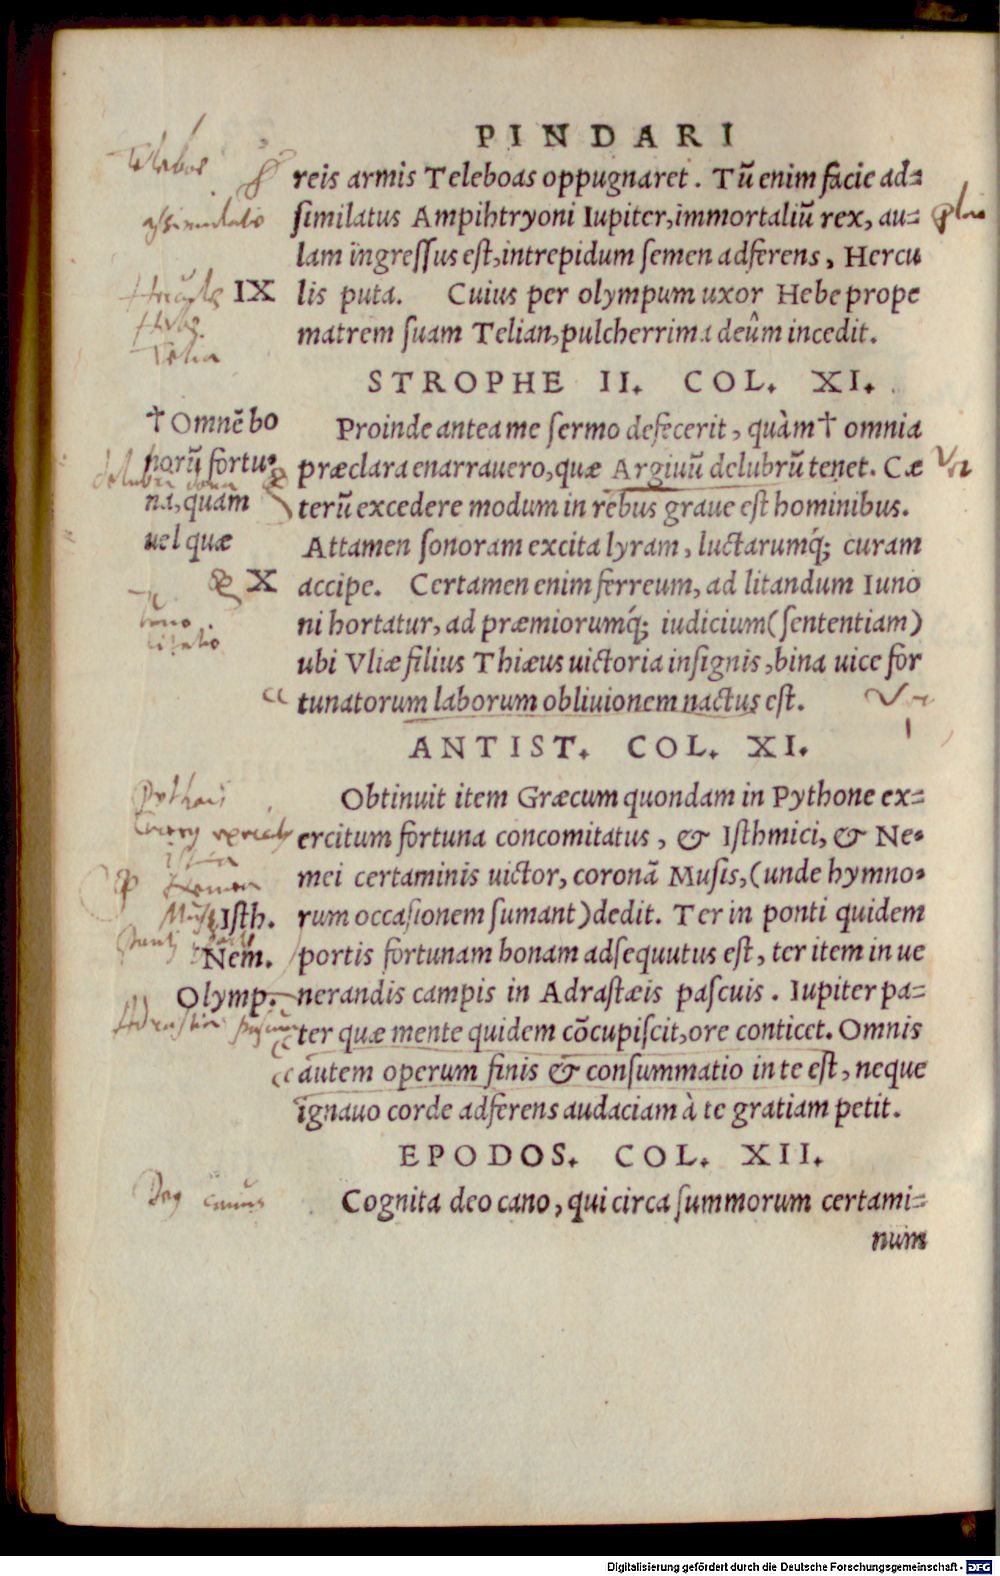 PINDARI
Teleboe
reis armis Teleboas oppugnaret. Tũ enim facie ad=
assimulatio
similatus Ampihtryoni Iupiter, immortaliũ rex, au=
lam ingressus est, intrepidum semen adferens, Hercu
IX lis puta. Cuius per olympum uxor Hebe prope
Hebe
matrem suam Telian, pulcherrima deûm incedit.
Telia
STROPHE II. COL. XI.
† Omnẽ bo
norũ fortu=
na, quam
uel quæ
Proinde antea me sermo defecerit, quàm † omnia
præclara enarrauero, quæ Argiuũ delubrũ tenet. Cæ
terũ excedere modum in rebus graue est hominibus.
Attamen sonoram excita lyram, luctarumq́; curam
X accipe. Certamen enim ferreum, ad litandum Iuno
Iuno
litatio
ni hortatur, ad præmiorumq́; iudicium (sententiam)
ubi Vliæ filius Thiæus uictoria insignis, bina uice for
tunatorum laborum obliuionem nactus est.
ANTIST. COL. XI.
Obtinuit item Græcum quondam in Pythone ex=
ercitum fortuna concomitatus, & Isthmici, & Ne=
mei certaminis uictor, coronã Musis, (unde hymno=
Isth. rum occasionem sumant) dedit. Ter in ponti quidem
Nem. portis fortunam bonam adsequutus est, ter item in ue
Olymp. nerandis campis in Adrastæis pascuis. Iupiter pa=
ter quæ mente quidem cõcupiscit, ore conticet. Omnis
autem operum finis & consummatio in te est, neque
ignauo corde adferens audaciam à te gratiam petit.
EPODOS. COL. XII.
Cognita deo cano, qui circa summorum certami=
num
Digitalisierung gefördert durch die Deutsche Forschungsgemeinschaft - DFG